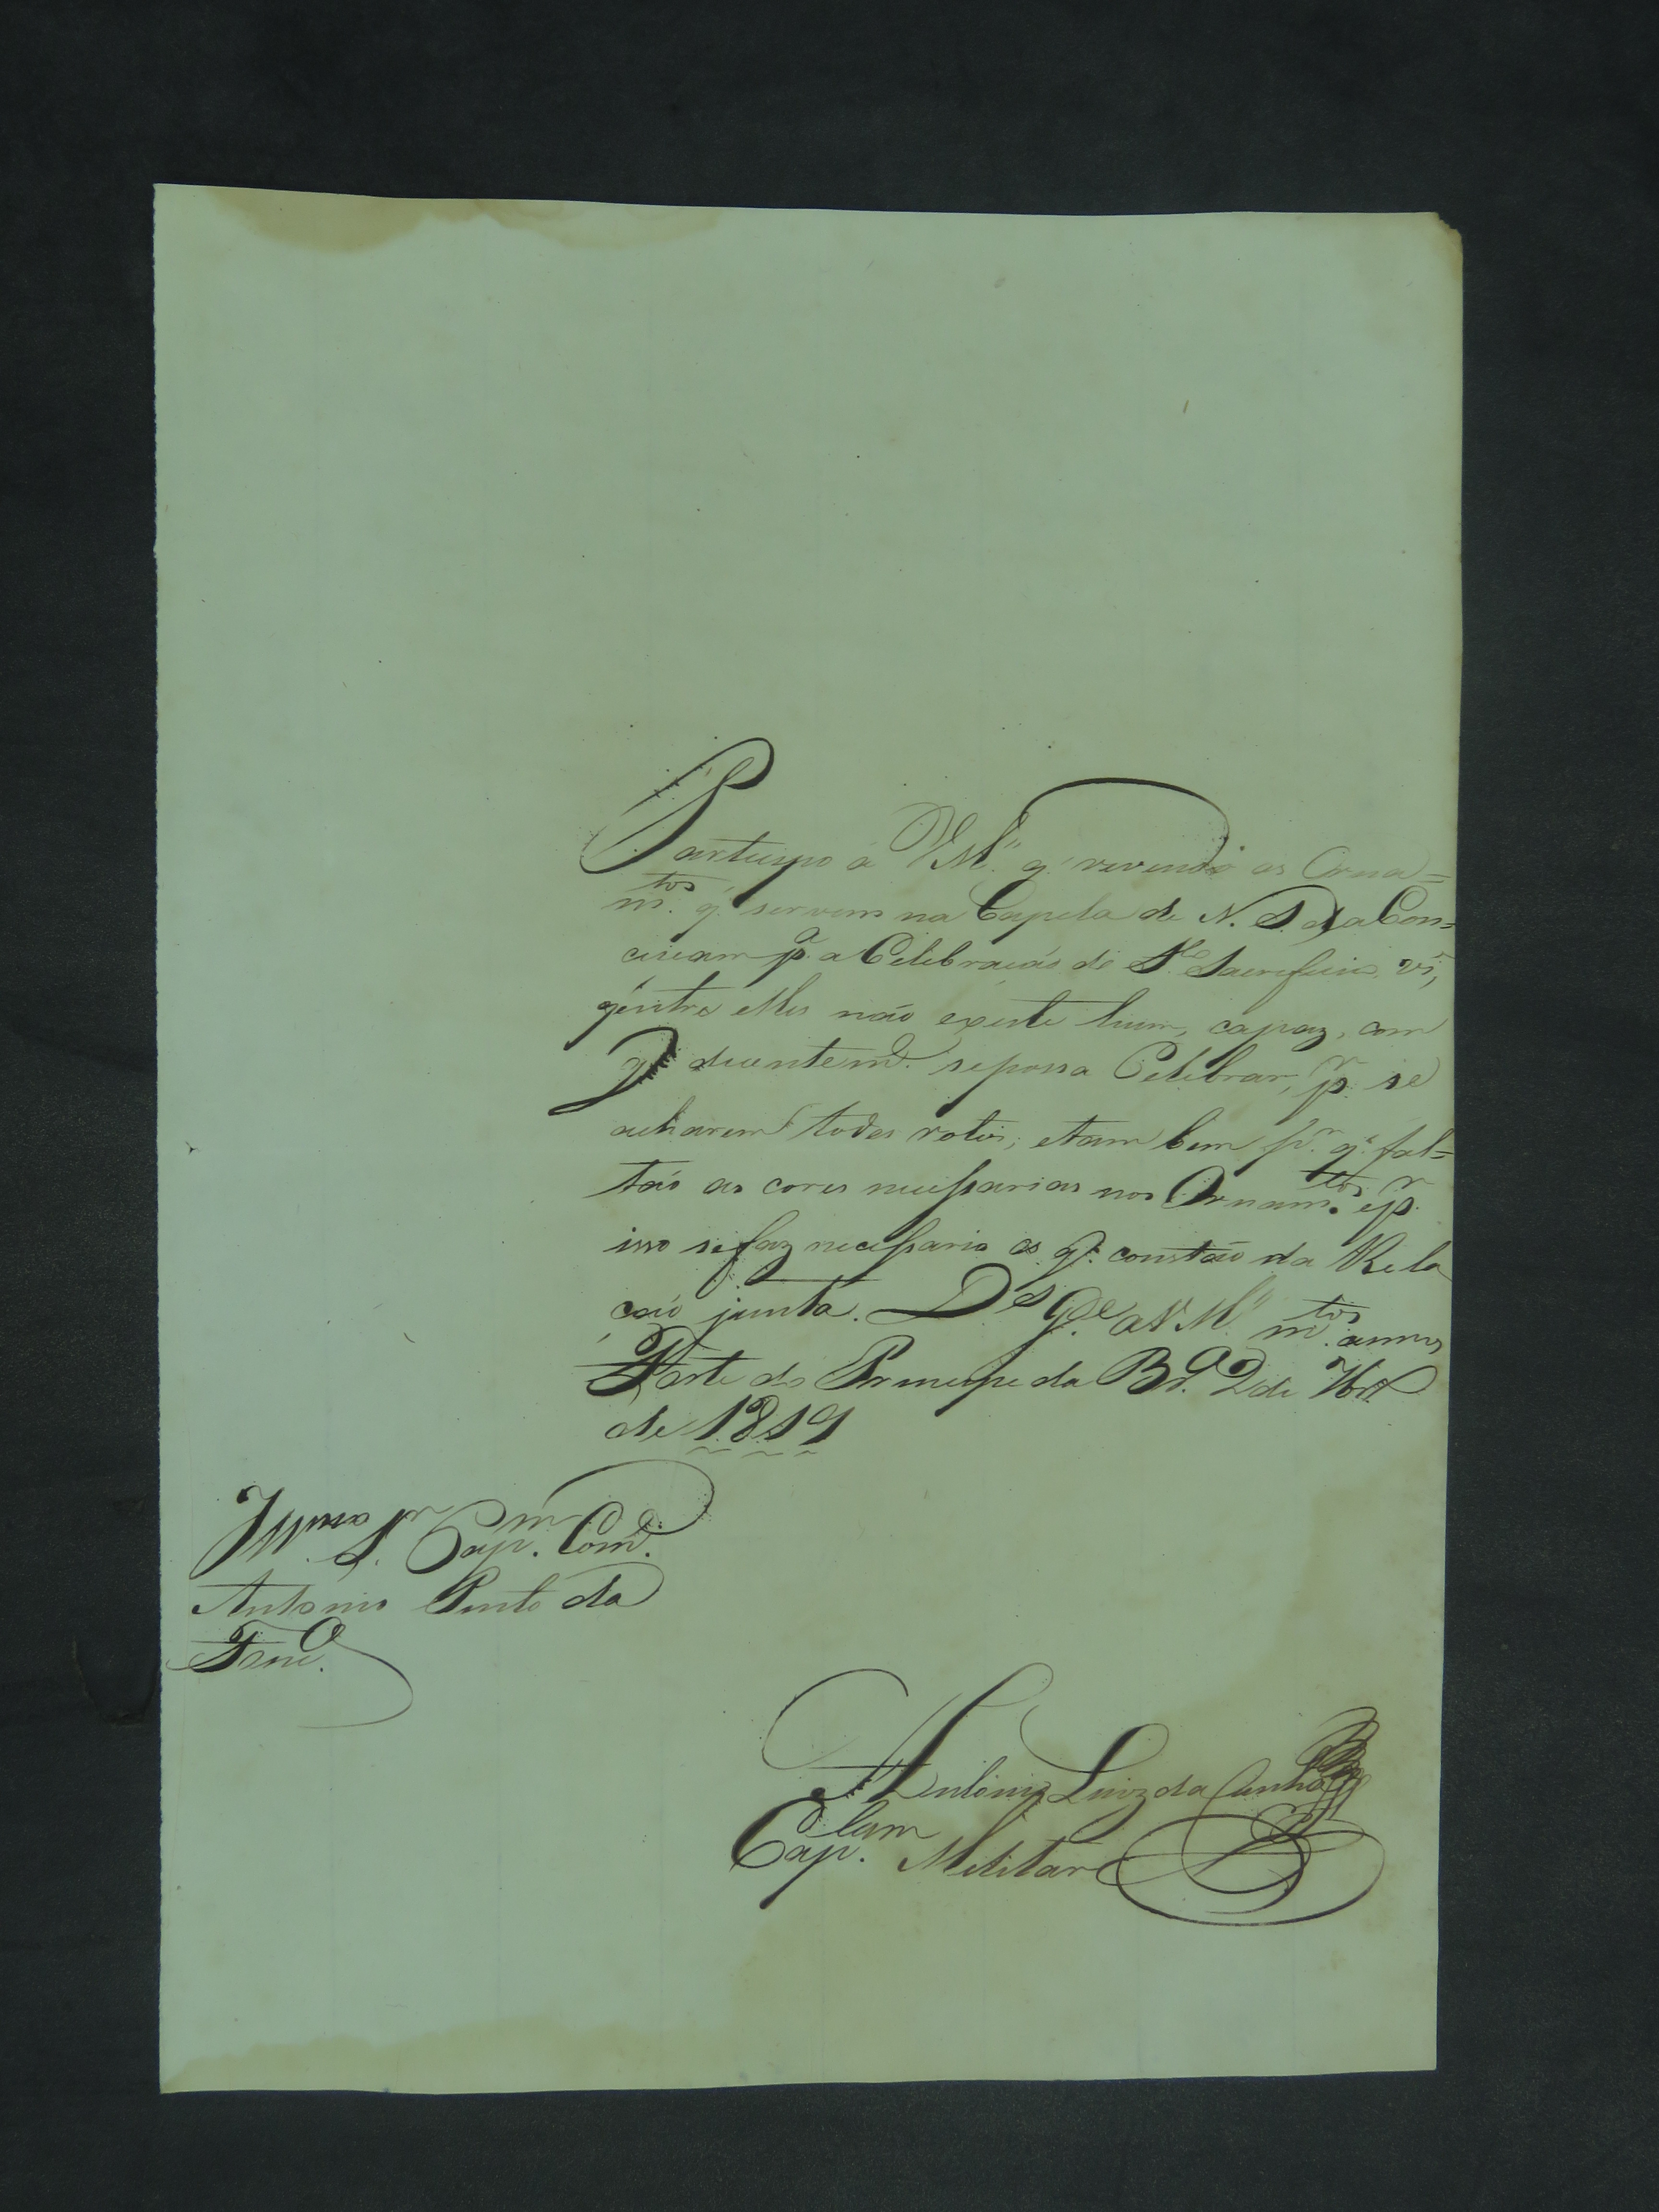 Partecipo a VM.ce q' revendo os Orna=
m.tos q' servem na Capela de N. S. da Con=
ceicam p.a a Celebracáo de S.to Sacreficio, vi,
q'entre elles não existe hum, capaz, com
q' decentem.e sepossa Celebrar, p.r se
acharem todos rotos; etam bem p.r q' fal=
táo as cores necessarias nos Ornam.tos, ep.r
isso sefaz necessario os q' constáo da Rela
cáo junta. D.s g.de a VM.ce m.tos annos
Forte do Principe da B.ra 2 de 7br.o
de 1819
Ill.mo S.r Cap.m Com.e
Antonio Pinto da
Fon.ca
Antonio Luiz da Cunha
Cap.lam Melitar